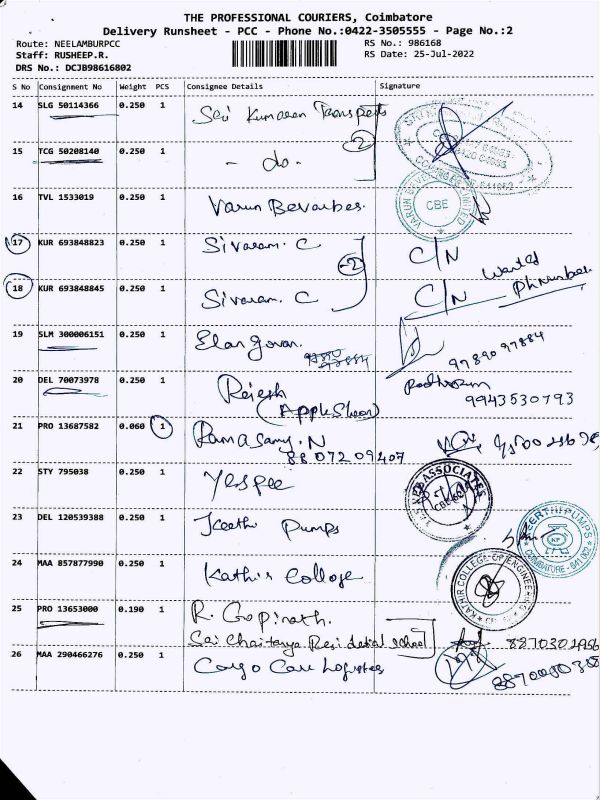 THE PROFESSIONAL COURIERS, Coimbatore
Delivery Runsheet - PCC - Phone No.:0422-3505555 - Page No.:2
Route: NEELAMBURPCC
RS No.: 986168
Staff: RUSHEEP.R.
RS Date: 25-Jul-2022
DRS No.: DCJB98616802
S No Consignment No Weight PCS Consignee Details Signature
14 SLG 50114366 0.250 1 Sri Kumaran Transports
2
15 TCG 50208140 0.250 1 - do -
16 TVL 1533019 0.250 1 Varun Bevarbes.
VARUN LIMITED CBE
17 KUR 693848823 0.250 1 Sivaram. C C/N
2
Wanted
Ph number
18 KUR 693848845 0.250 1 Sivaram. C C/N
19 SLM 300006151 0.250 1 Elangovan.
97890 97884
20 DEL 70073978 0.250 1 Rajesh
(Apple Shean)
9943530793
21 PRO 13687582 0.060 1 Ramasamy. N
8807209407
22 STY 795038 0.250 1 Yespee
ASSOCIATES
23 DEL 120539388 0.250 1 Keethi Pumps
KEERTHI PUMPS COIMBATORE - 641 062
24 MAA 857877990 0.250 1 Kathir College
KATHIR COLLEGE OF ENGINEERING
25 PRO 13653000 0.190 1 R. Gopinath.
Sai Chaitanya Residetial school
26 MAA 290466276 0.250 1 Cargo Care Logistics